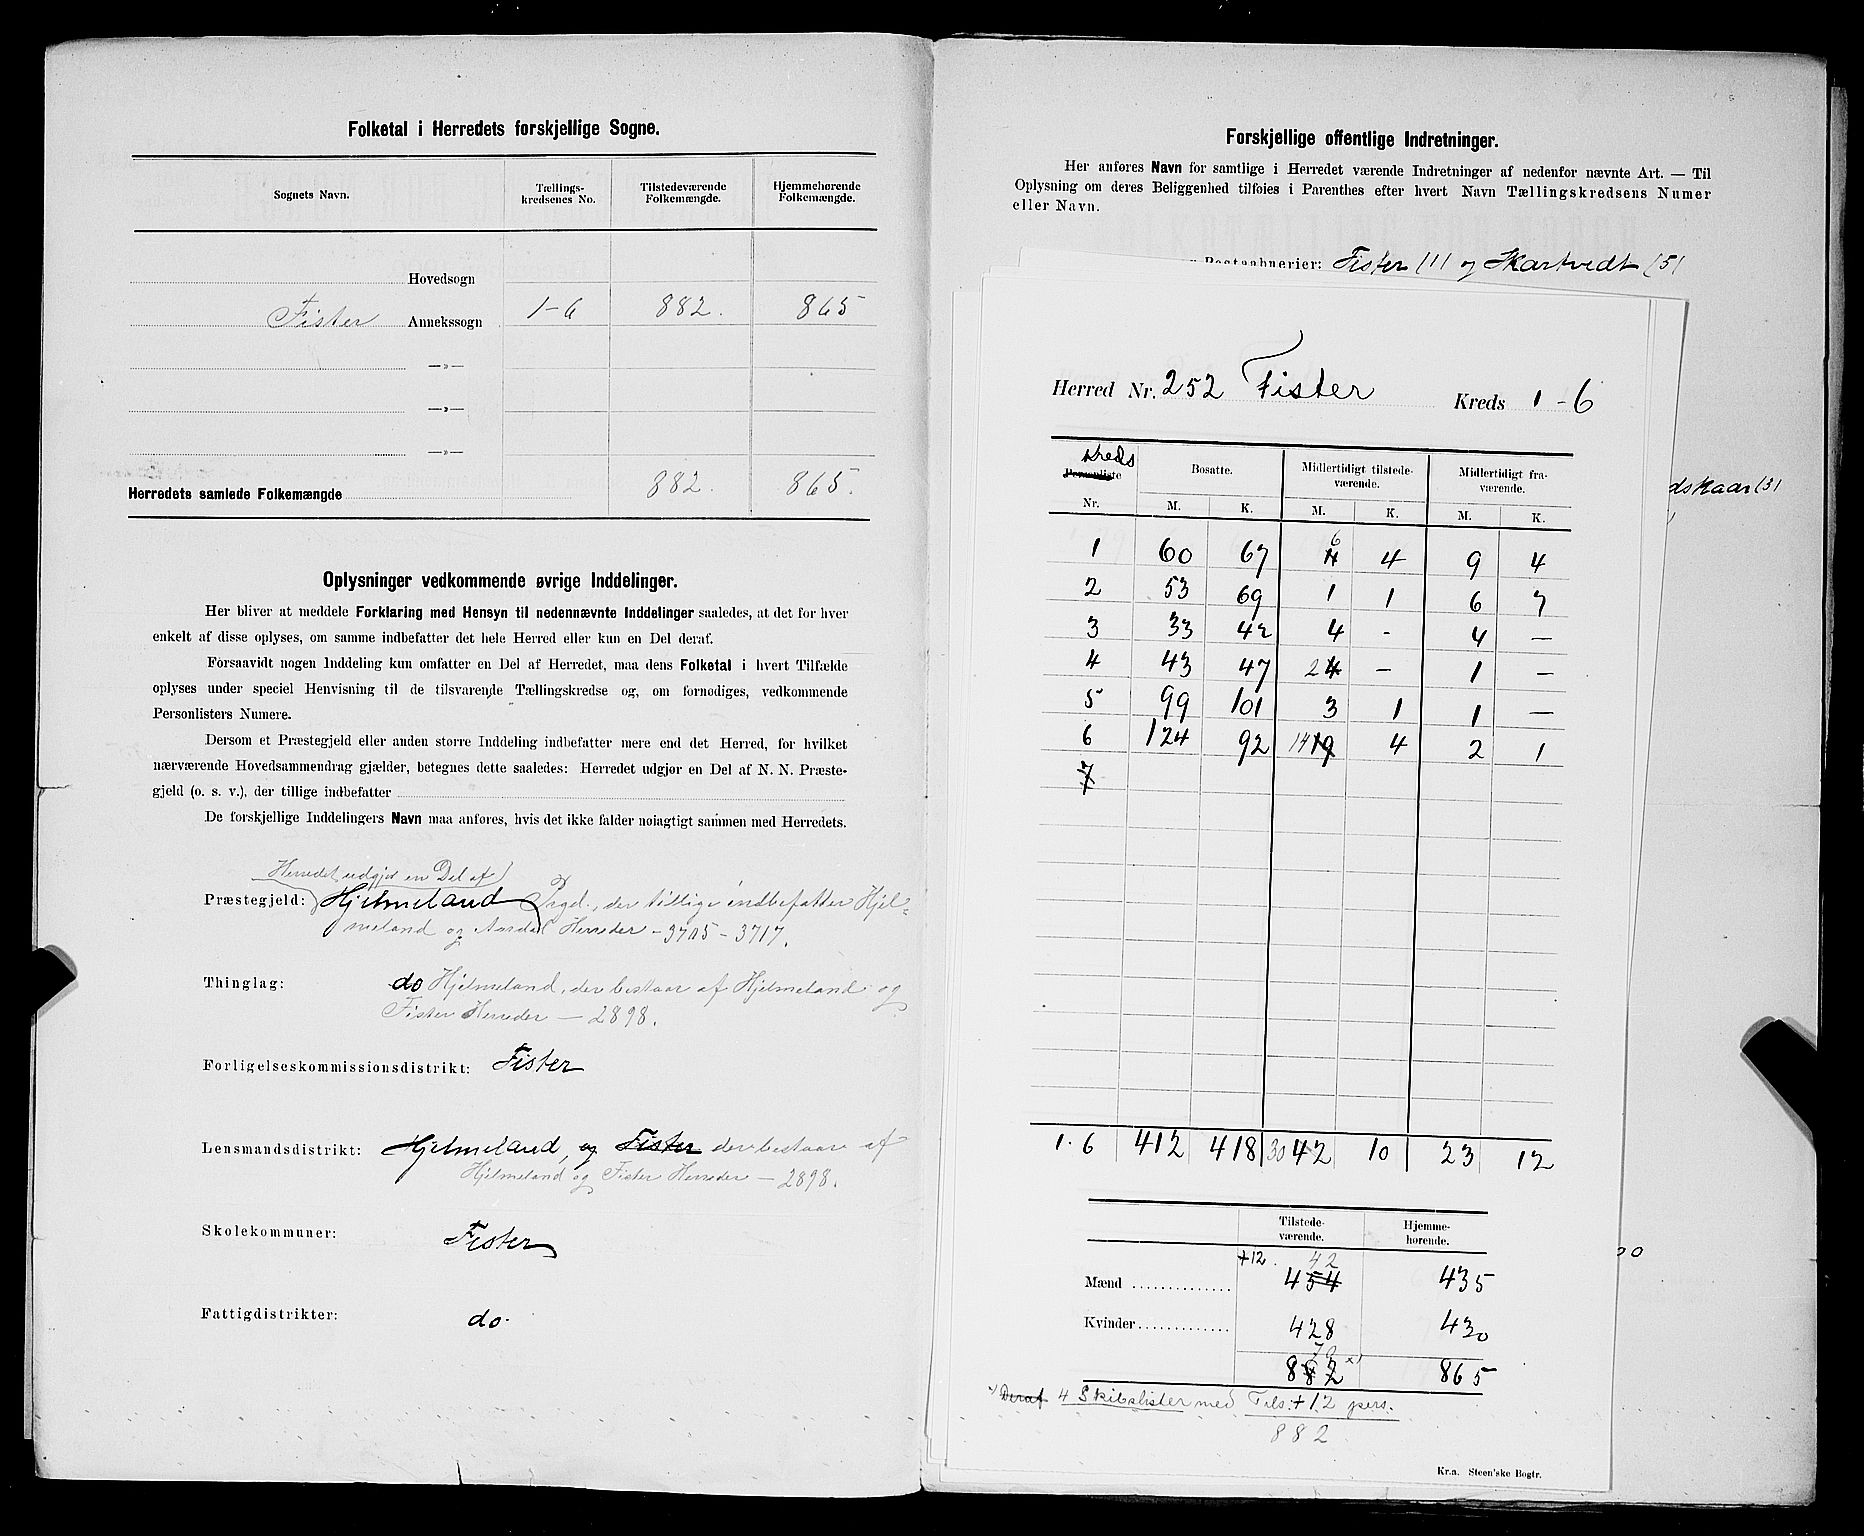 Folketal i Herredets forskjellige Sogne.
Sognets Navn. Tællings-kredsenes No. Tilstedeværende Folkemængde. Hjemmehørende Folkemængde.
Hovedsogn
Fister Annekssogn 1-6 882. 865
—»—
—»—
—»—
Herredets samlede Folkemængde 882. 865.
Oplysninger vedkommende øvrige Inddelinger.
Her bliver at meddele Forklaring med Hensyn til nedennævnte Inddelinger saaledes, at det for hver
enkelt af disse oplyses, om samme indbefatter det hele Herred eller kun en Del deraf.
Forsaavidt nogen Inddeling kun omfatter en Del af Herredet, maa dens Folketal i hvert Tilfælde
oplyses under speciel Henvisning til de tilsvarende Tællingskredse og, om fornødiges, vedkommende
Personlisters Numere.
Dersom et Præstegjeld eller anden større Inddeling indbefatter mere end det Herred, for hvilket
nærværende Hovedsammendrag gjælder, betegnes dette saaledes: Herredet udgjør en Del af N. N. Præste-
gjeld (o. s. v.), der tillige indbefatter
De forskjellige Inddelingers Navn maa anføres, hvis det ikke falder nøiagtigt sammen med Herredets.
Herredet udgjør en Del af
Præstegjeld: Hjelmeland Prgd., der tillige indbefatter Hjel-
meland og Aardal Herreder - 3705 - 3717.
Thinglag: do Hjelmeland, der bestaar af Hjelmeland og
Fister Herreder — 2898.
Forligelseskommissionsdistrikt: Fister
Lensmandsdistrikt: Hjelmeland, og Fister der bestaar af
Hjelmeland og Fister Herreder — 2898.
Skolekommuner: Fister
Fattigdistrikter: do.
Forskjellige offentlige Indretninger.
Her anføres Navn for samtlige i Herredet værende Indretninger af nedenfor nævnte Art. — Til
Oplysning om deres Beliggenhed tilføies i Parenthes efter hvert Navn Tællingskredsens Numer
eller Navn.
Postaabnerier: Fister (1) og Skartvedt (5)
dskaar (3)
Herred Nr. 252 Fister Kreds 1-6
Kreds
Personliste
Nr. Bosatte. Midlertidigt tilstede-værende. Midlertidigt fra-værende.
M. K. M. K. M. K.
1 60 67 6 4 4 9 4
2 53 69 1 1 6 7
3 33 42 4 - 4 —
4 43 47 2 4 — 1 —
5 99 101 3 1 1 —
6 124 92 14 19 4 2 1
7
1-6 412 418 30 42 10 23 12
Tilstede-værende. Hjemme-hørende.
+12. 42
Mænd 454 435
Kvinder 428 430
70 x)
882 865
x) Deraf 4 Skibslister med Tils. +12 pers.
882
Kr.a. Steen'ske Bogtr.